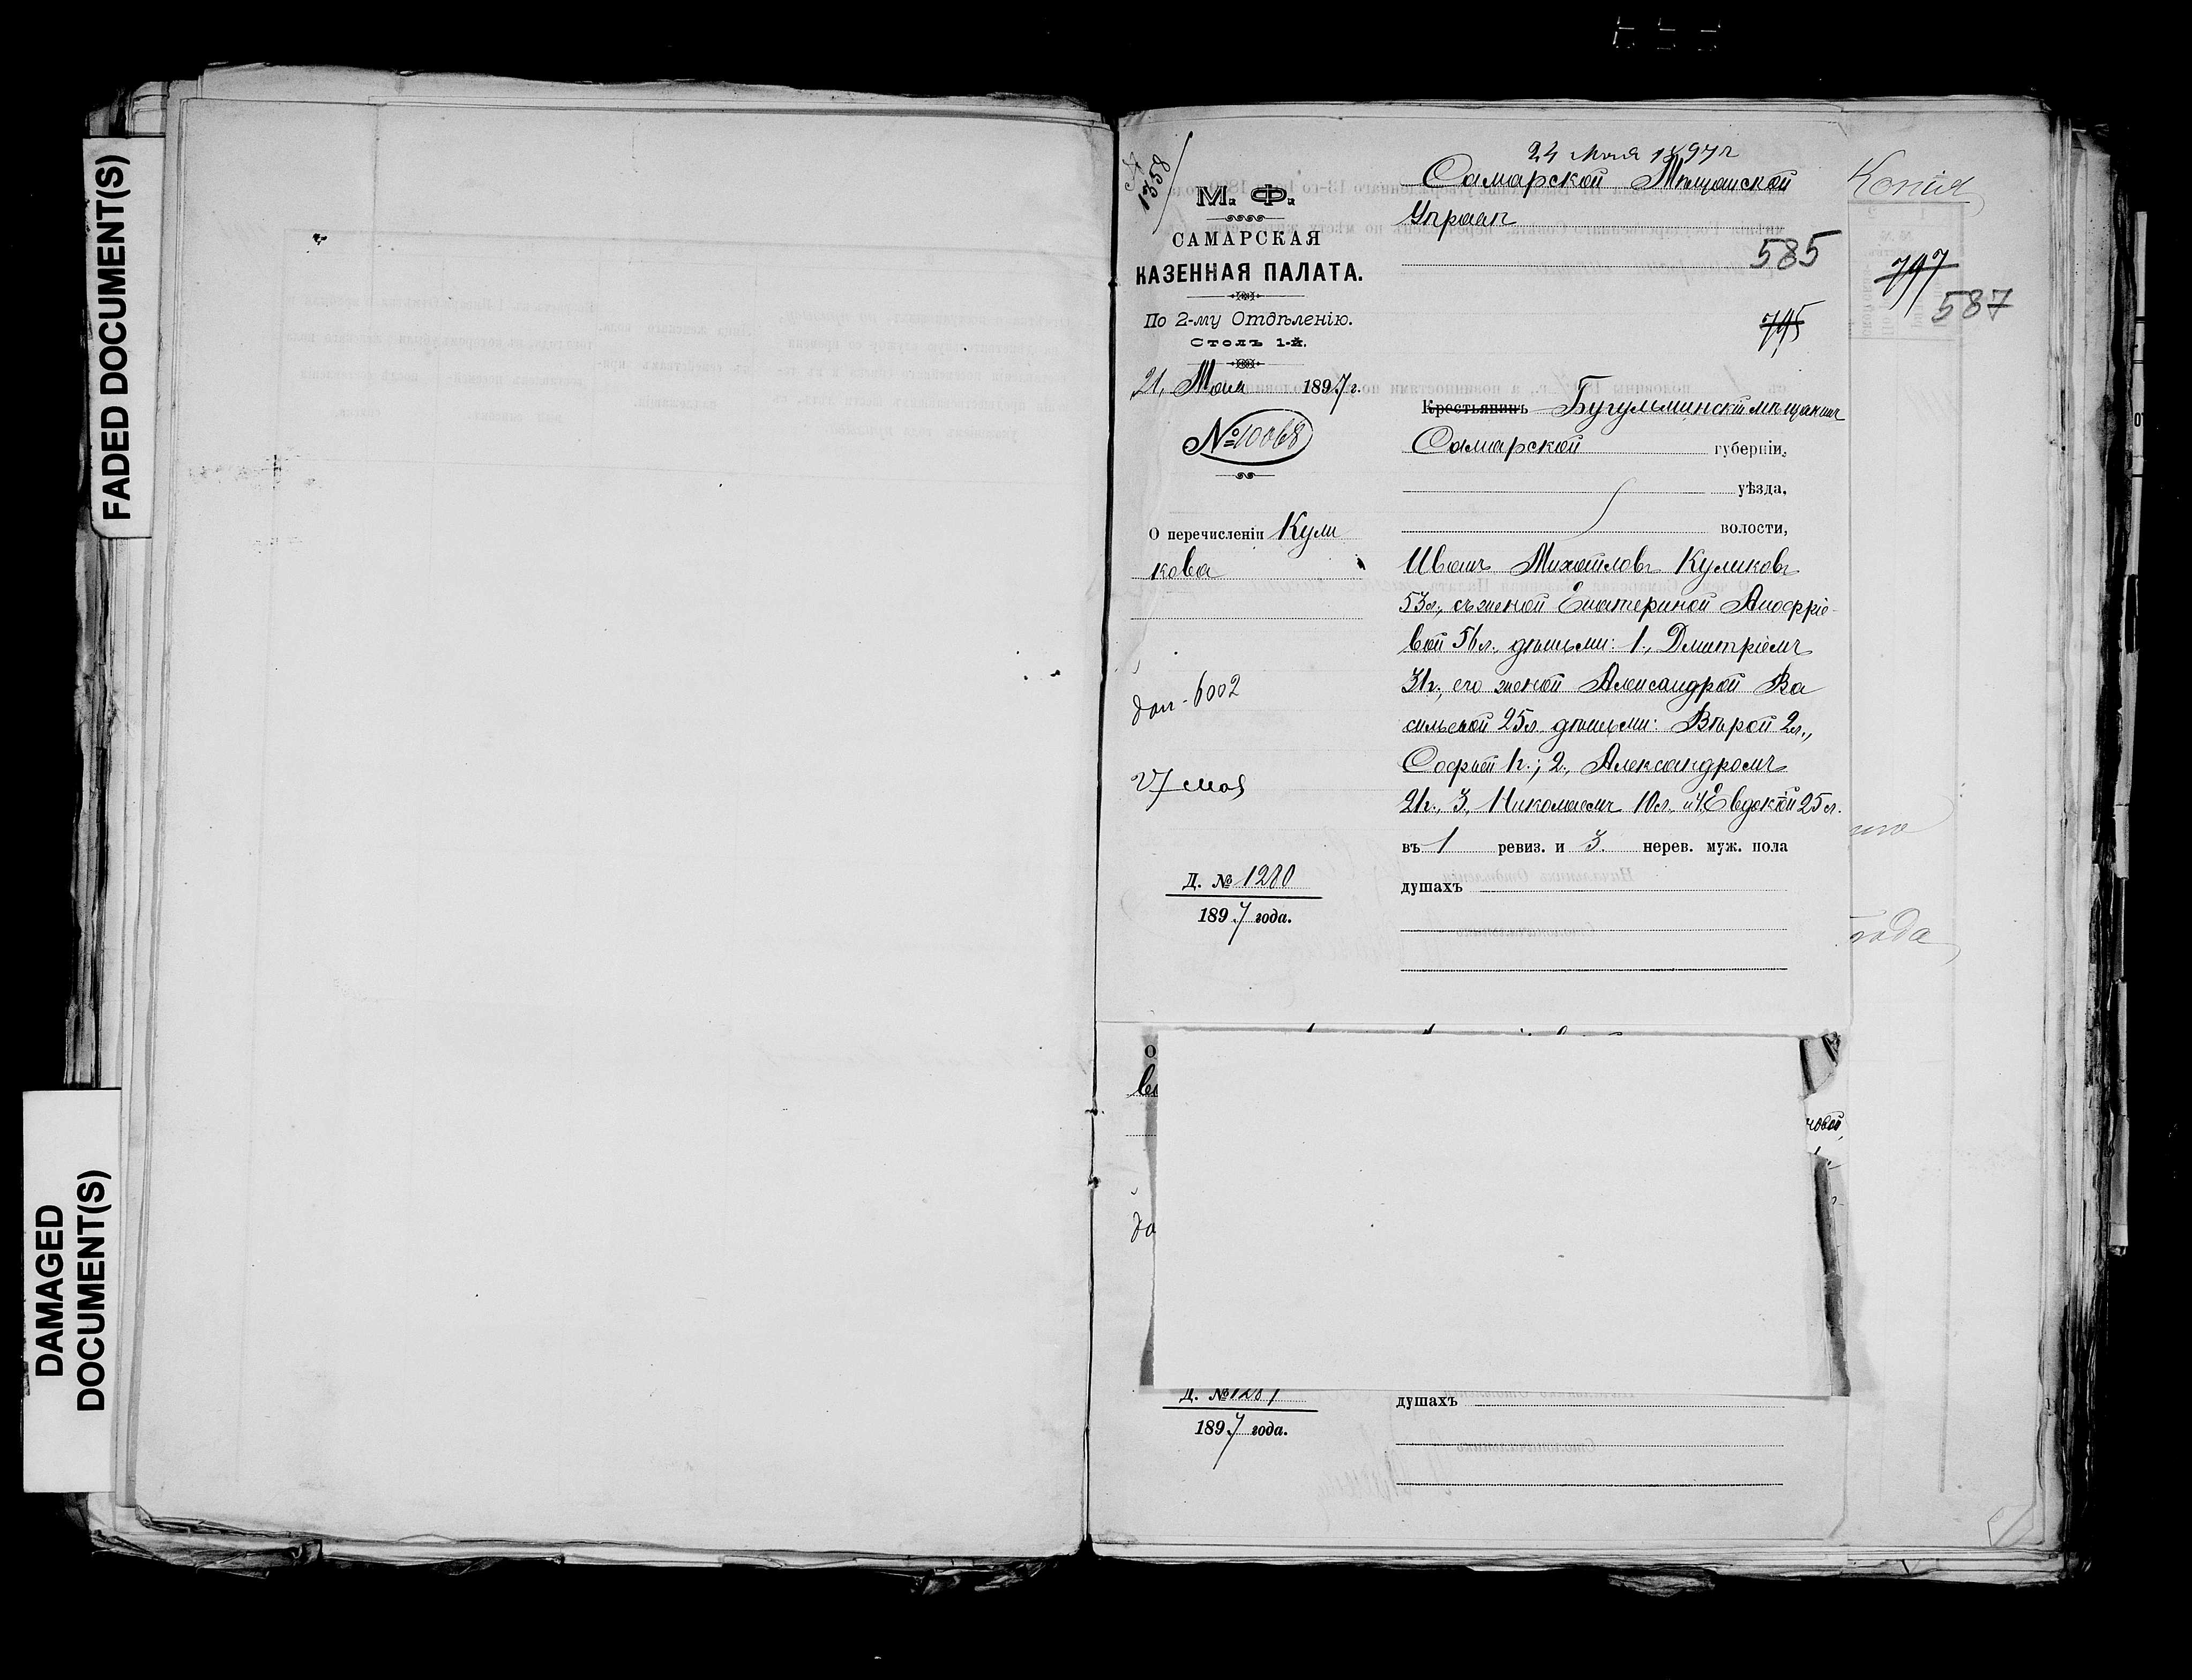 FADED DOCUMENT(S)
DAMAGED
DOCUMENT(S)
№
1358
М. Ф.
САМАРСКАЯ
КАЗЕННАЯ ПАЛАТА.
По 2-му Отдѣленію.
Столъ 1-й.
21 Мая 1897 г.
№ 10068
О перечисленіи Кули
кова
доп - 6002
27 мая
Д. № 1280
1897 года.
24 Мая 1897 г
Самарской Мѣщанской
Управѣ
585
795
Крестьянинъ Бугульминскій мѣщанинъ
Самарской губерніи,
уѣзда,
волости,
Иванъ Михайловъ Куликовъ
53 л., съ женой Екатериной
вой 56 л., дѣтьми: 1., Дмитріемъ
31 г., его женой Александрой Ва
сильевой 25 л. дѣтьми: Вѣрой 2 л.,
Софьей 1 г.; 2., Александромъ
21 г., 3, Николаемъ 10 л. и 4, Евдокіей 25 л.
въ 1 ревиз. и 3. нерев. муж. пола
душахъ
Копія
797
587
года
О
до
новой,
Д. № 1281
1897 года.
душахъ